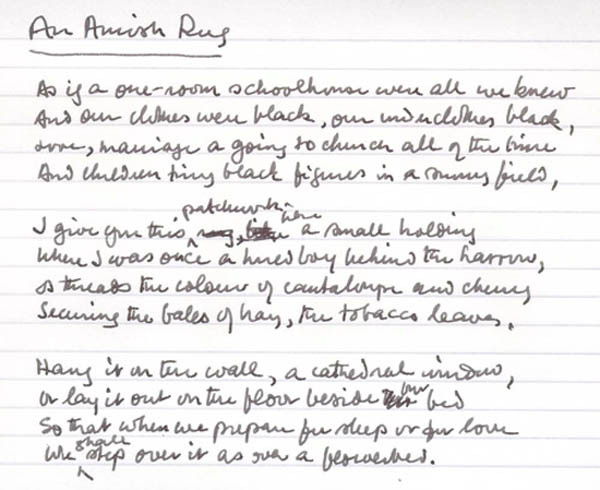 An Amish Rug
As if a one-room schoolhouse were all we knew
And our clothes were black, our underclothes black,
Love, marriage a going to church all of the time
And children tiny black figures in a field,
I give you this patchwork a small holding
Where I was once a hired boy behind the harrow,
Its threads the colour of cantaloupe and cherry
Securing the bales of hay, the tobacco leaves.
Hang it on the wall, a cathedral window,
Or lay it out on the floor beside our bed
So that when we prepare for sleep or for love
We shall step over it as over a flowerbed.